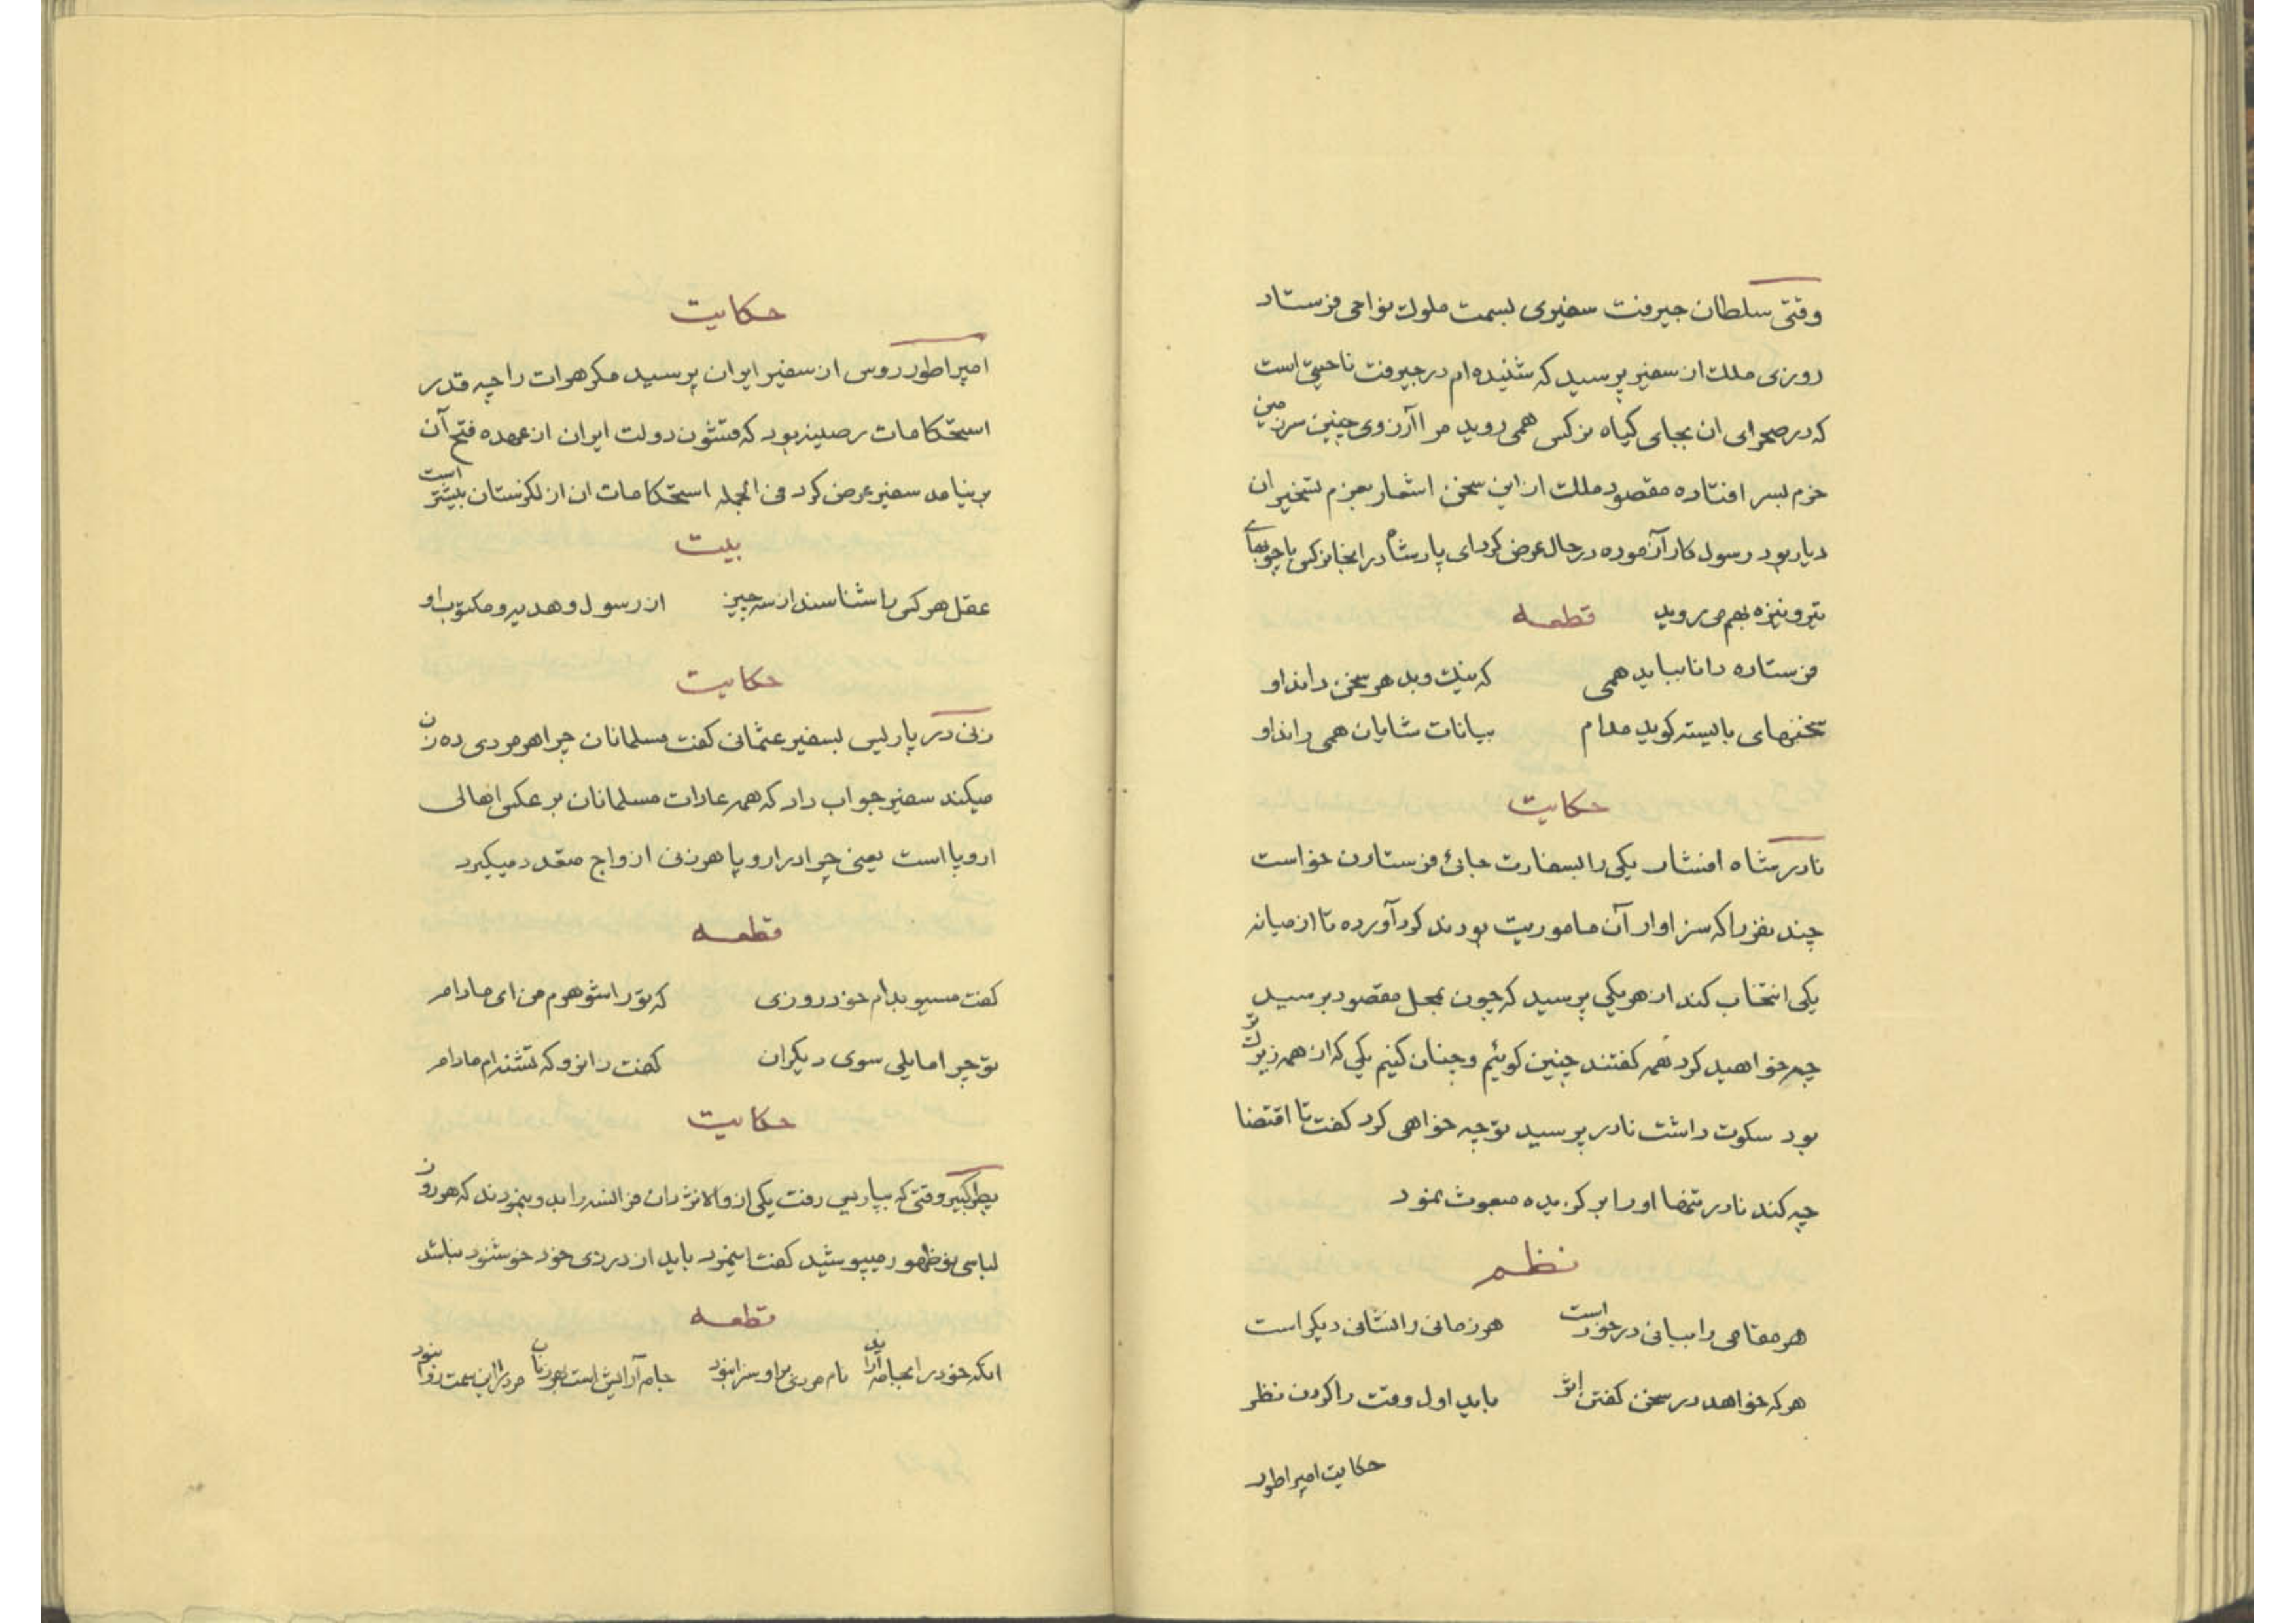 وقتی سلطان جیرفت سفیری بسمت ملوک نواحی فرستاد
روزی ملک از سفیر پرسید که شنیده‌ام در جیرفت ناحیتی است
که در صحرای ان بجای کیاه نرکس همی روید مرا آرزوی چنین سرزمین
خرم بسر افتاده مقصود ملک از این سخن اشعار بعزم تسخیر ان
دیار بود رسول کار آزموده در حال عرض کرد ای پادشاه در انجا نرکس با چوبهای
تیر و نیزه بهم می روید قطعه
فرستاده دانا بباید همی که نیک و بد هر سخن داند او
سخنهای بایسته کوید مدام بیانات شایان همی راند او
حکایت
نادر شاه افشار یکی را بسفارت جائی فرستادن خواست
چند نفر را که سزاوار آن ماموریت بودند کرد آورده تا از میانه
یکی انتخاب کند از هر یکی پرسید که چون بمحل مقصود برسید
چه خواهید کرد همه کفتند چنین کوئیم و چنان کنیم یکی که از همه زیرکتر
بود سکوت داشت نادر پرسید تو چه خواهی کرد کفت تا اقتضا
چه کند نادر شاه او را بر کزیده مبعوث نمود
نظم
هر مقامی را بیانی در خور است هر زمانی را نشانی دیکر است
هر که خواهد در سخن کفتن اثر باید اول وقت را کردن نظر
حکایت امپراطور
حکایت
امپراطور روس از سفیر ایران پرسید مکر هرات را چه قدر
استحکامات رصینه بود که قشون دولت ایران از عهده فتح آن
بر نیامد سفیر عرض کرد فی الجمله استحکامات ان از لکزستان بیشتر است
بیت
عقل هر کس را شناسند از سه چیز از رسول و هدیه و مکتوب او
حکایت
زنی در پاریس بسفیر عثمانی کفت مسلمانان چرا هر مردی ده زن
میکند سفیر جواب داد که همه عادات مسلمانان بر عکس اهالی
اروپا است یعنی چرا در اروپا هر زنی ازواج متعدد میکیرد
قطعه
کفت مسیو بدام خود روزی که تو را شوهرم من ای مادام
تو چرا مایلی سوی دیکران کفت زانرو که تشنه‌ام مادام
حکایت
پطر کبیر وقتی که بپاریس رفت یکی از والانژادان فرانسه را بدو نمودند که هر روز
لباسی نو ظهور میپوشید کفت اینمرد باید از درزی خود خوشنود نباشد
قطعه
انکه خود را بجامه آراید نام مردی براو سزا نبود جامه آرایش است بهر زنان مرد را این سمت روا نبود